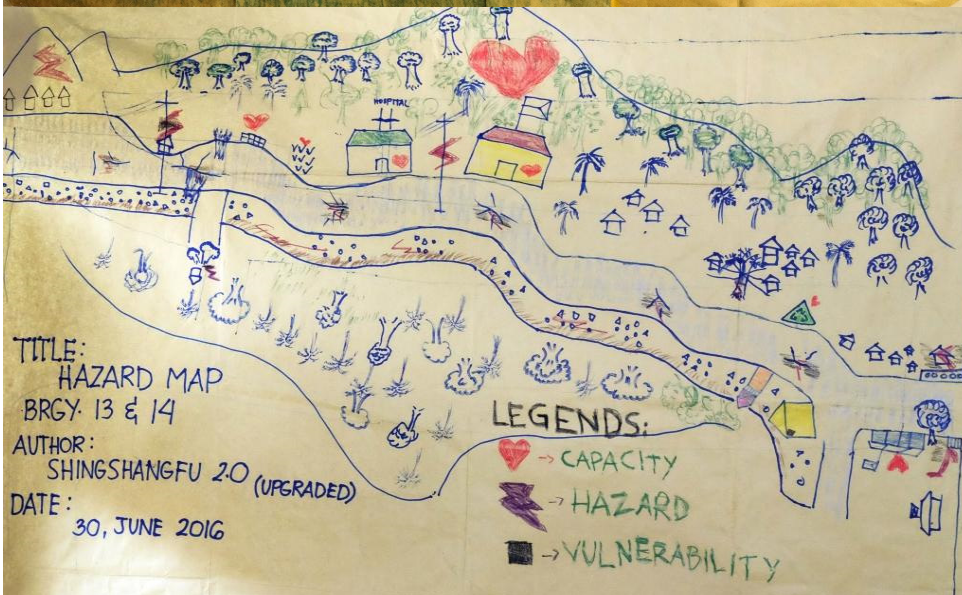 HOSPITAL
TITLE:
HAZARD MAP
BRGY. 13 & 14
AUTHOR:
SHINGSHANGFU 2.0 (UPGRADED)
DATE:
30, JUNE 2016
LEGENDS:
→ CAPACITY
→ HAZARD
→ VULNERABILITY